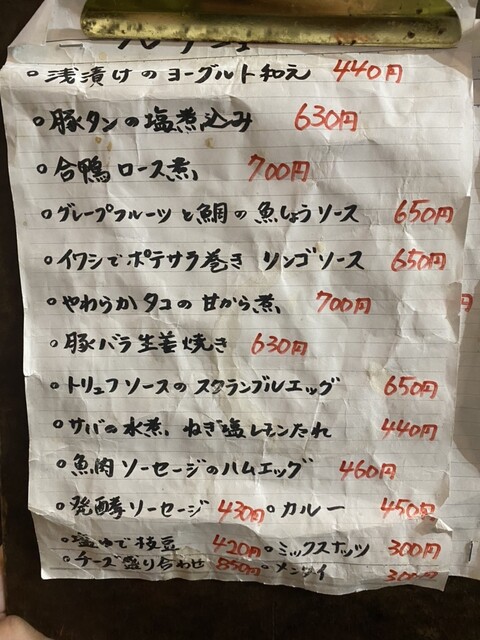 浅漬けのヨーグルト和え 440円
豚タンの塩煮込み 630円
合鴨ロース煮 700円
グレープフルーツと鯛の魚しょうソース 650円
イワシでポテサラ巻き リンゴソース 650円
やわらかタコの甘から煮 700円
豚バラ生姜焼き 630円
トリュフソースのスクランブルエッグ 650円
サバの水煮 ねぎ塩レモンたれ 440円
魚肉ソーセージのハムエッグ 460円
発酵ソーセージ 430円 カルー 450円
塩ゆで枝豆 420円 ミックスナッツ 300円
チーズ盛り合わせ 850円 メンツイ 300円